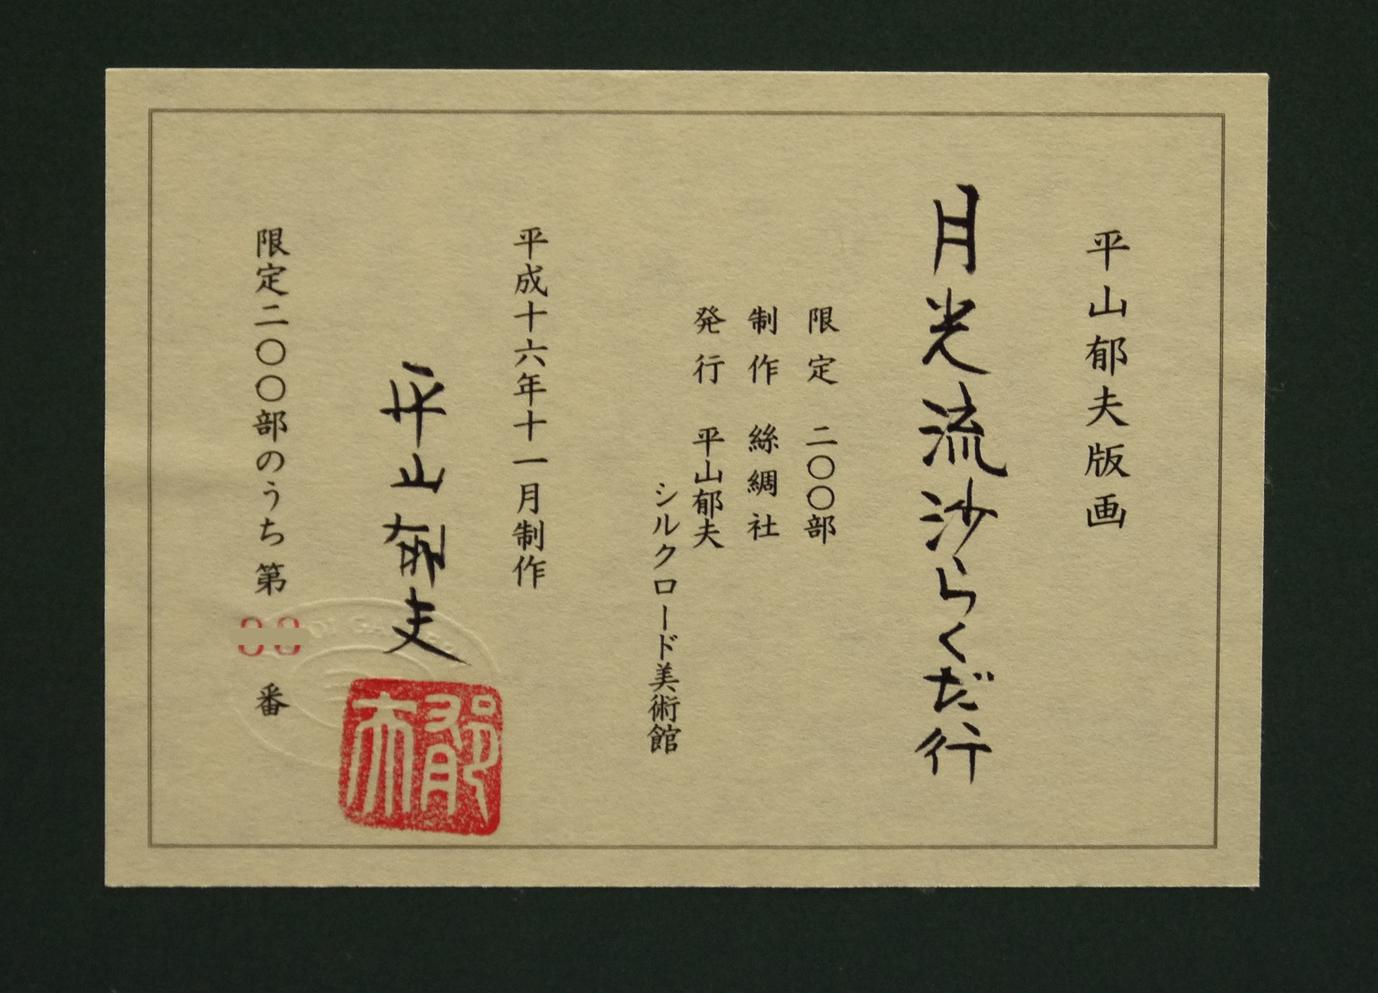 平山郁夫版画
月光流沙らくだ行
限定 二〇〇部
制作 絲綢社
発行 平山郁夫
シルクロード美術館
平成十六年十一月制作
平山郁夫
郁夫
限定二〇〇部のうち第
番